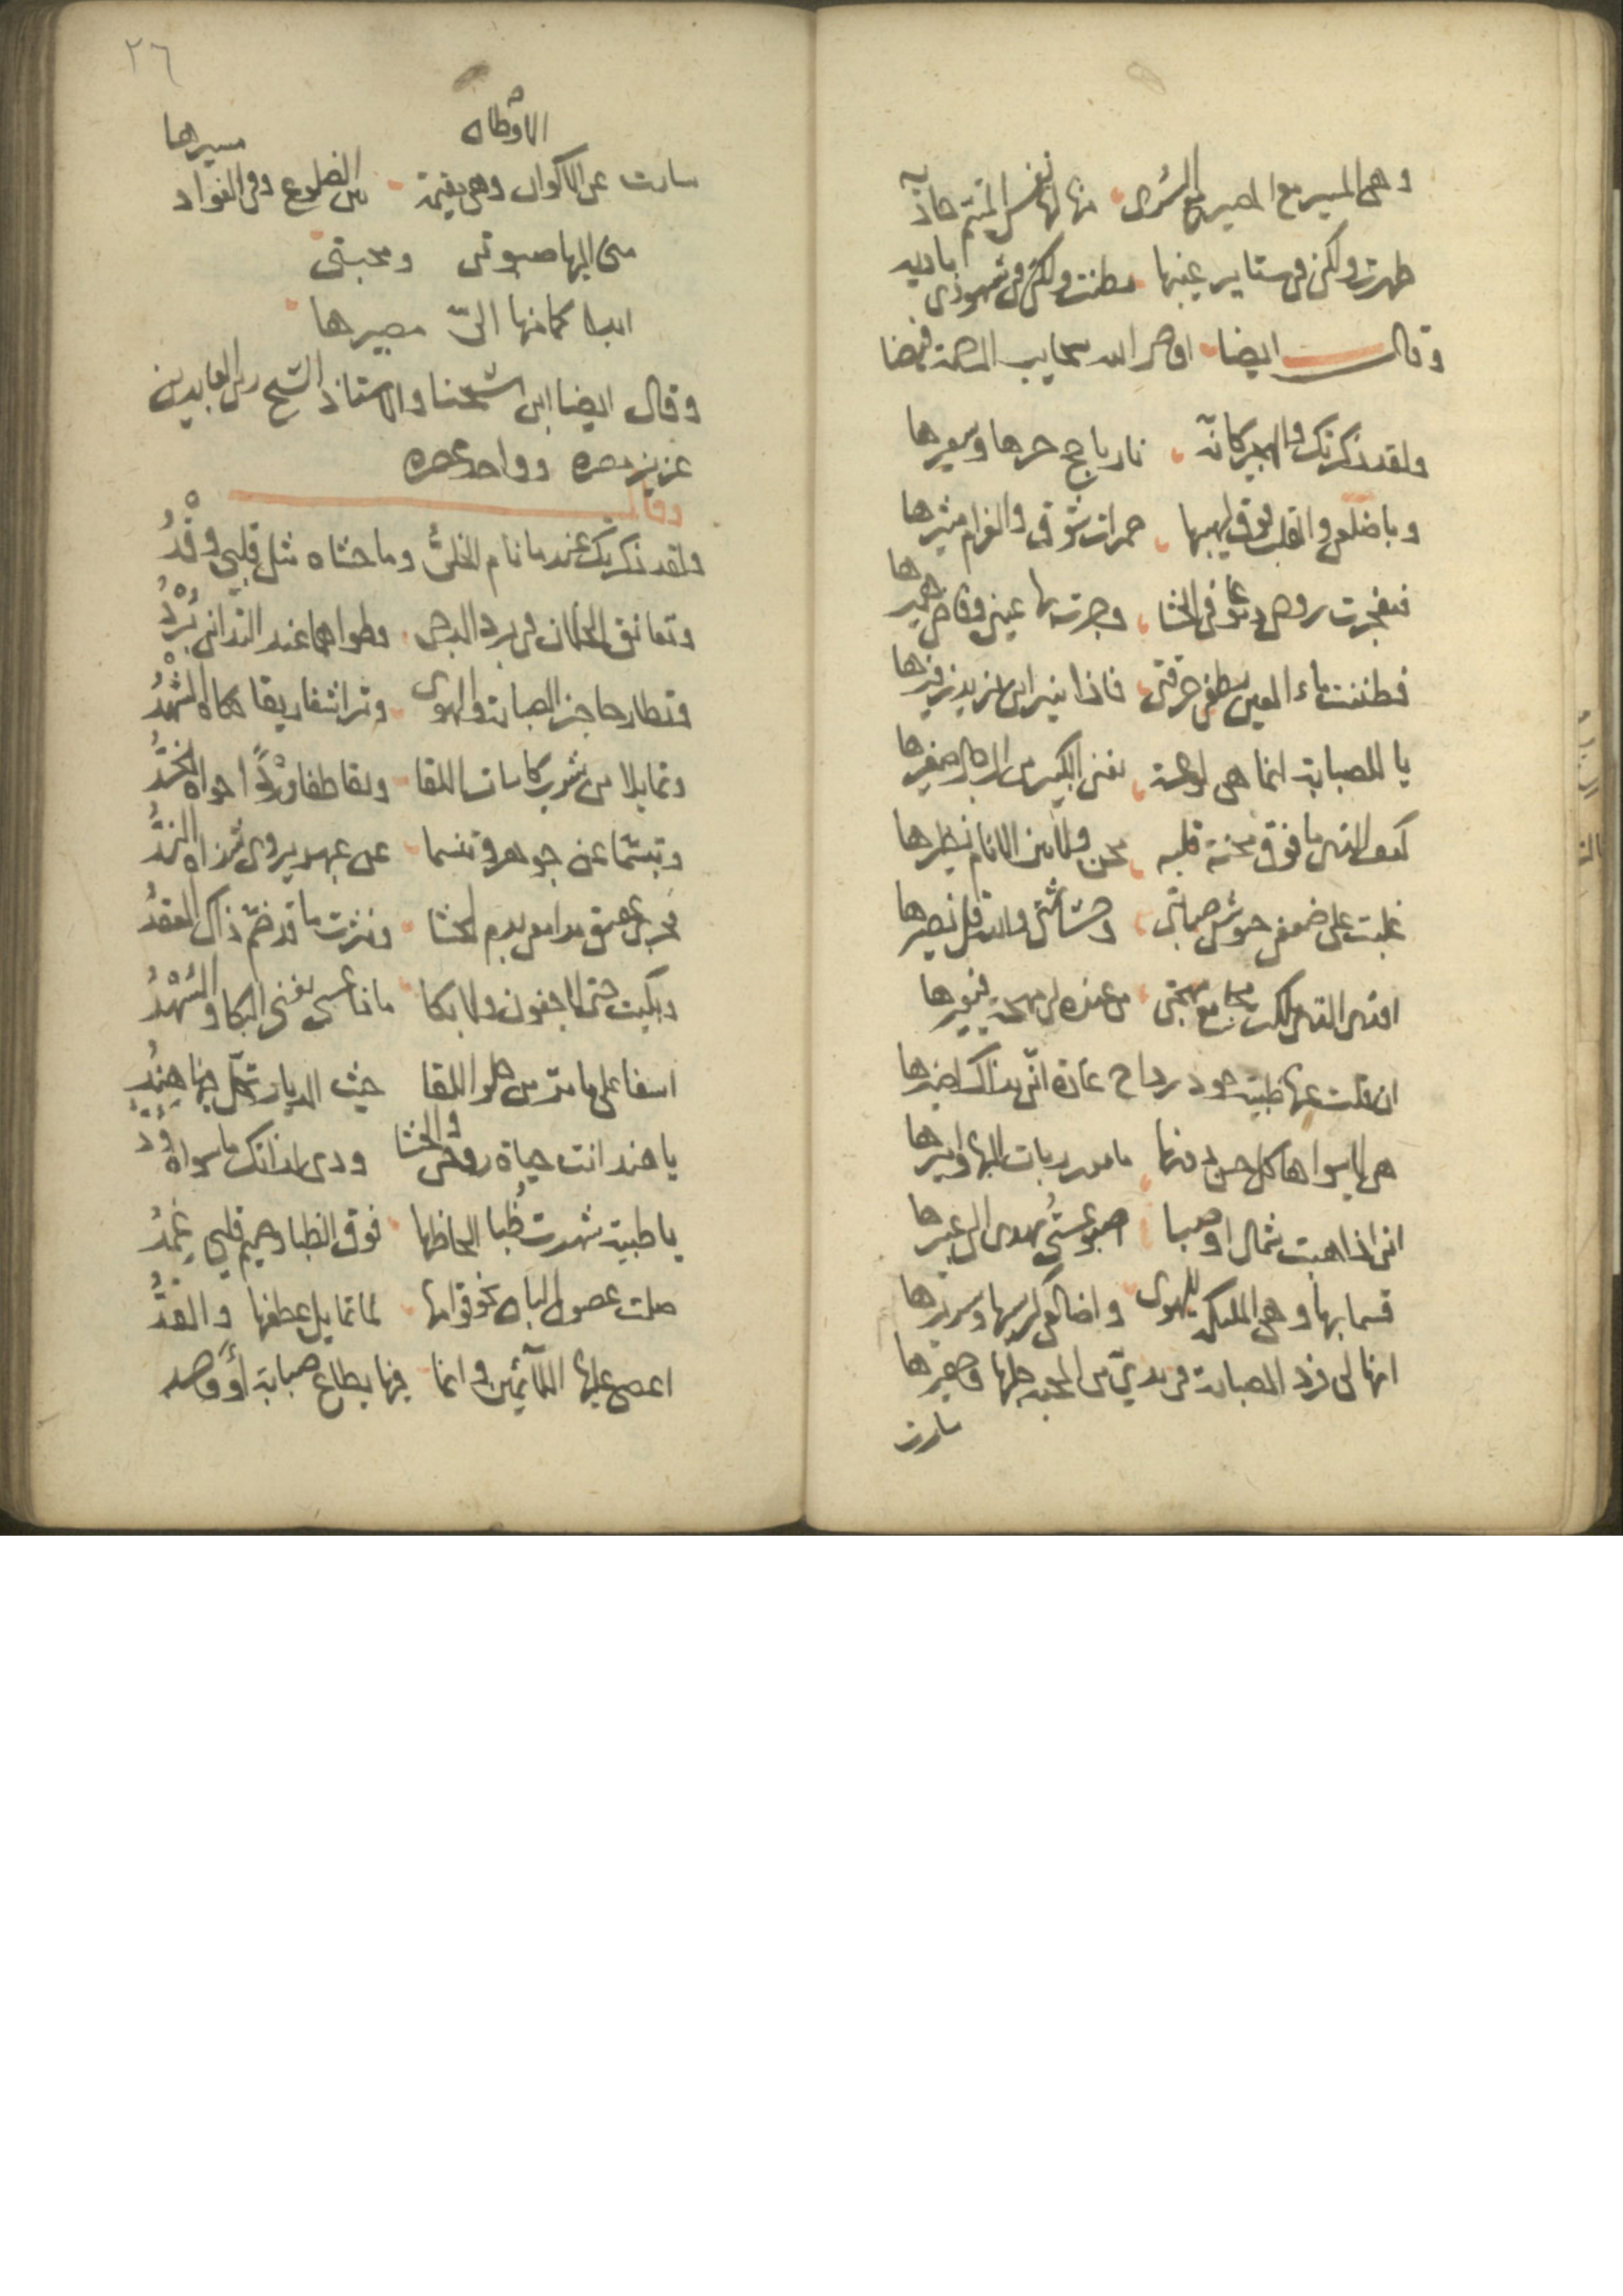 وهي المسير مع المصير الى السرى منها لها نفس المتيم حاذيه
ظهرت ولكن في ستاير غيبها بطنت ولكن في شهودي باديه
وقال ايضا افاض الله سحايب الرحمة
ولقد ذكرتك والهجير كانه نار ياجج حرها وسعيرها
وباضلعي والقلب فوق لهيبها جمرات شوق والغرام مثيرها
فتفجرت روحي دموعا في الحشا وجرت بها عيني وفاض
فظننت ماء العين يطفي حرقتي فاذا بنيراني يزيد زفيرها
يا للصبابة انما هي لوعة يفني الكبير من الرجال صغيرها
كيف المنى ما فوق محنة قلبه محن ولا بين الانام نظيرها
غلبت على ضعفي جيوش صبابتي وحشاشتي والله قل نصيرها
افدى التي ملكت مجامع مهجتي من عنده لي مهجة فيعيرها
ان قلت عنها ظبية خود رداح غادة اني بذاك اضيرها
هي لا سواها كل حسن دونها ما بدر ربات البها واميرها
اني اذا هبت شمال او صبا اصبو عسى يهدى الي عبيرها
قسما بها وهي المليكة للهوى واضالعي كرسيها وسريرها
انها لي فرد الصبابة في يدي من المحبة حلها
سارت
٢٦
الاوطان
سارت عن الاكوان وهي مقيمة بين الضلوع وفي الفواد مسيرها
مني اليها صبوتي ومحبتي
ابدا كما منها الي مصيرها
وقال ايضا ابن شيخنا والاستاذ الشيخ زين العابدين
عزيز مصره وواحد عصره
وقال
ولقد ذكرتك عندما نام الخلي وما حشاه مثل قلبي وقد
وتعانق الخلان في برد الدجى وطواهما عند التداني برد
وتطارحا خبر الصبابة والهوى وترشفا ريقا حكاه الشهد
وتمايلا من شرب كاسات اللقا وتقاطفا وردا حواه الخد
وتبسما عن جوهر وتنسما عن عهد يروى شذاه الند
فجرى عقيق مدامعي بدم الحشا ونثرت ما قد ضم ذاك العقد
وبكيت حتى لا جفون ولا بكا ماذا عسى يغني البكا والسهد
اسفا على ما مر من حلو اللقا حيث الديار تحل فيها هند
يا هند انت حياة روحي والحشا ودي لذاتك ما سواه ود
يا ظبية شهرت ظبا الحاظها فوق الظبا وصميم قلبي غمد
صلت غصون البان نحو قوامها لما تمايل عطفها والقد
اعصي عليها اللائمين وانما فيها يطاع صبابة او وجد